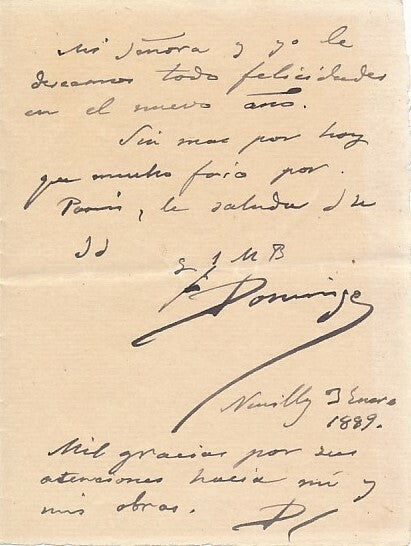 Mi Señora y yo le
deseamos todo felicidades
en el nuevo año.
Sin mas por hoy
que mucho frio por
Paris, le saluda
S M B
F Domingo
Neuilly 3 Enero
1889.
Mil gracias por sus
atenciones hacia mi y
mis obras.
D